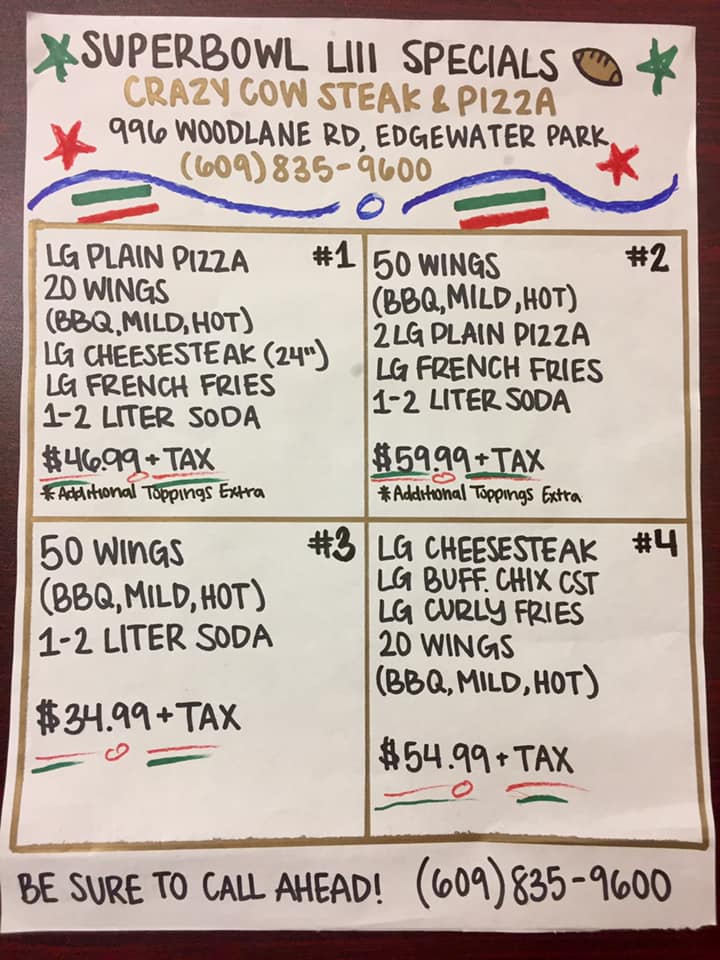 SUPERBOWL LIII SPECIALS
CRAZY COW STEAK & PIZZA
996 WOODLANE RD, EDGEWATER PARK
(609) 835-9600
#1
LG PLAIN PIZZA
20 WINGS
(BBQ, MILD, HOT)
LG CHEESESTEAK (24")
LG FRENCH FRIES
1-2 LITER SODA
$46.99 + TAX
*Additional Toppings Extra
#2
50 WINGS
(BBQ, MILD, HOT)
2 LG PLAIN PIZZA
LG FRENCH FRIES
1-2 LITER SODA
$59.99 + TAX
*Additional Toppings Extra
#3
50 WINGS
(BBQ, MILD, HOT)
1-2 LITER SODA
$34.99 + TAX
#4
LG CHEESESTEAK
LG BUFF. CHIX CST
LG CURLY FRIES
20 WINGS
(BBQ, MILD, HOT)
$54.99 + TAX
BE SURE TO CALL AHEAD! (609) 835-9600